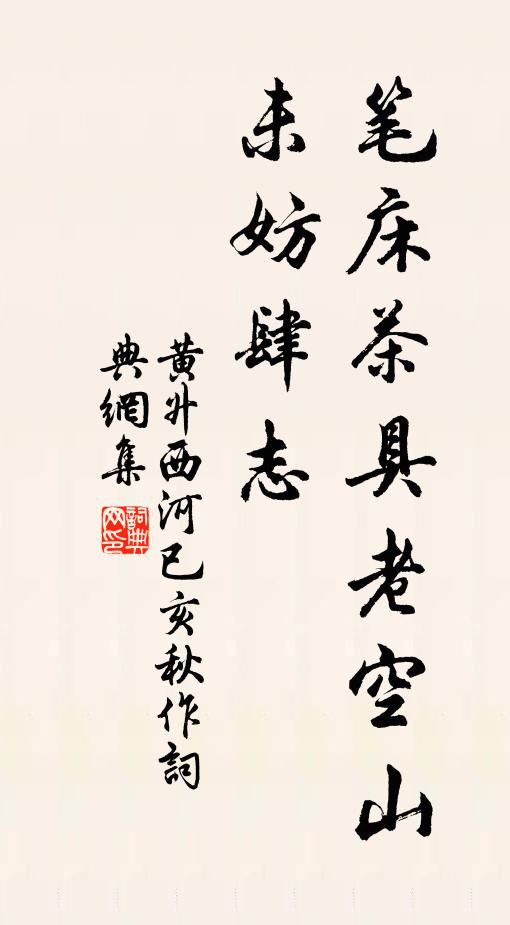 笔床茶具老空山
未妨肆志
黄升西河己亥秋作詞
典網集
詞典网印